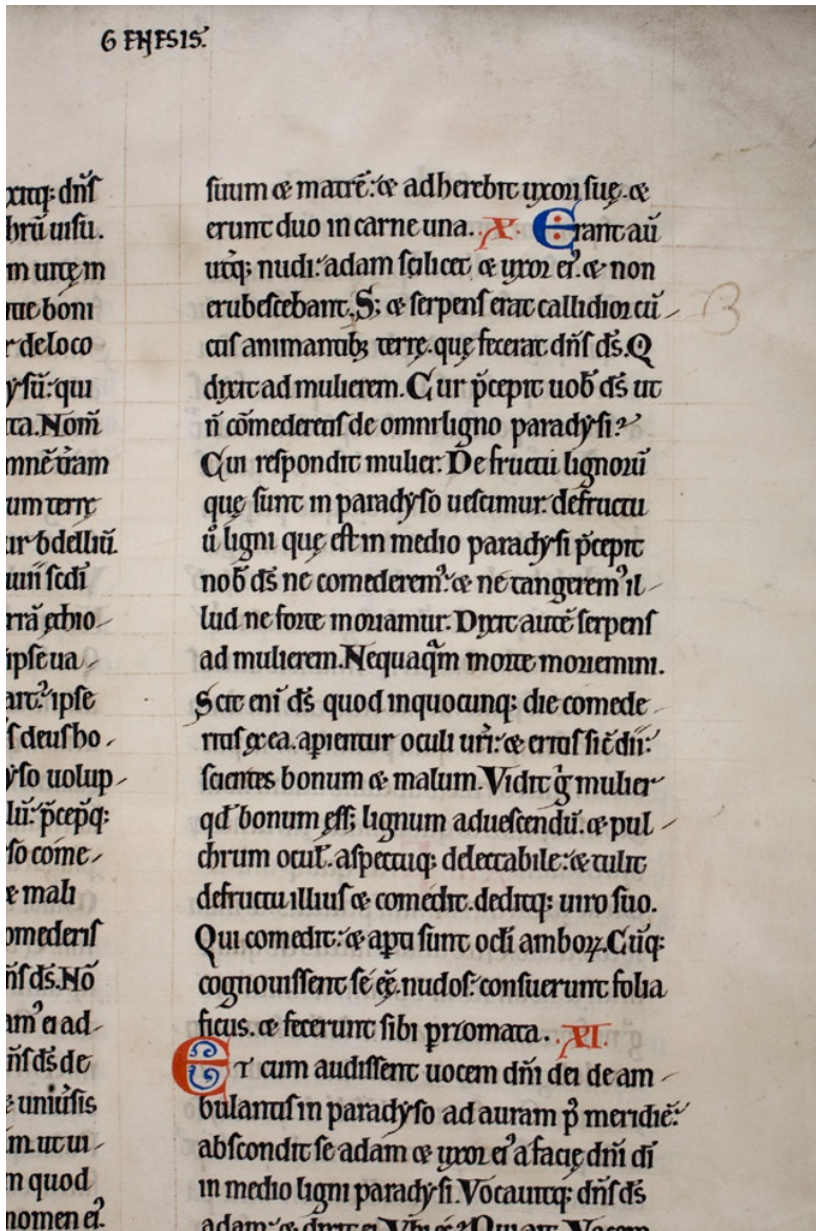 GENESIS.
xitq; dn̄s
brū uisu.
m utęm
boni
deloco
ẏ sū: qui
ta. Nom̄
mnē t̄ram
um terrę
ur bdelliū.
scd̄i
ipse ua
ipse
s deus ho
ẏso uolup
lū: p̄cep̄q:
so come
e mali
omederis
n̄s d̄s. Nō
ei ad
n̄s d̄s de
uniūsis
m ut ui
m quod
nomen ei᾽.
suum & matrē: & adherebit uxori suę. &
erunt duo in carne una. X. Erant aū
utq; nudi: adam scilicet & uxor ei᾽. & non
erubescebant. S; & serpens erat callidior cū
ctis animantib; terrę. que fecerat dn̄s d̄s. Q
dixit ad mulierem. Cur p̄cepit uob̄ d̄s ut
n̄ cōmederetis de omni ligno paradẏsi?
Cui respondit mulier. De fructu lignorū
quę sunt in paradẏso uescimur: de fructu
ū ligni quę est in medio paradẏsi p̄cepit
nob̄ d̄s ne comederem᾽: & ne tangerem᾽ il
lud ne forte moriamur. Dixit autē serpens
ad mulierem. Nequaq̄m morte moriemini.
Scit enī d̄s quod in quocunq; die comede
ritis ex ea. apientur oculi ur̄i: & eritis sic̄ dii:
scientes bonum & malum. Vidit g̊ mulier
qd̄ bonum ess; lignum aduescendū. & pul
chrum ocul̄. aspectuq; delectabile: & tulit
de fructu illius & comedit. deditq; uiro suo.
Qui comedit: & apti sunt oc̄li amboꝝ. Cūq;
cognouissent se eē. nudos: consuerunt folia
ficus. & fecerunt sibi prizomata. XI.
Et cum audissent uocem dn̄i dei deam
bulantis in paradẏso ad auram p̄ meridiē:
abscondit se adam & uxor ei᾽ a facię dn̄i d̄i
in medio ligni paradẏsi. Vocauitq; dn̄s d̄s
adam: & dixit ei. Vbi es? Qui ait. Vocem